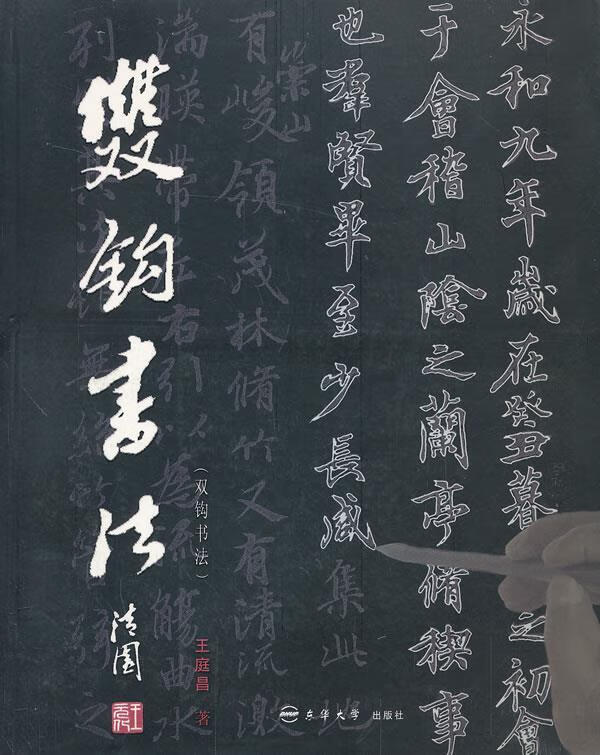 雙鈎書法
(双钩书法)
王庭昌 著
永和九年歲在癸丑暮
之初會
于會稽山陰之蘭亭脩稧事
也羣賢畢至少長咸集此地
崇山
有峻領茂林脩竹又有清流激
湍暎帶左右引以爲流觴曲水
东华大学 出版社